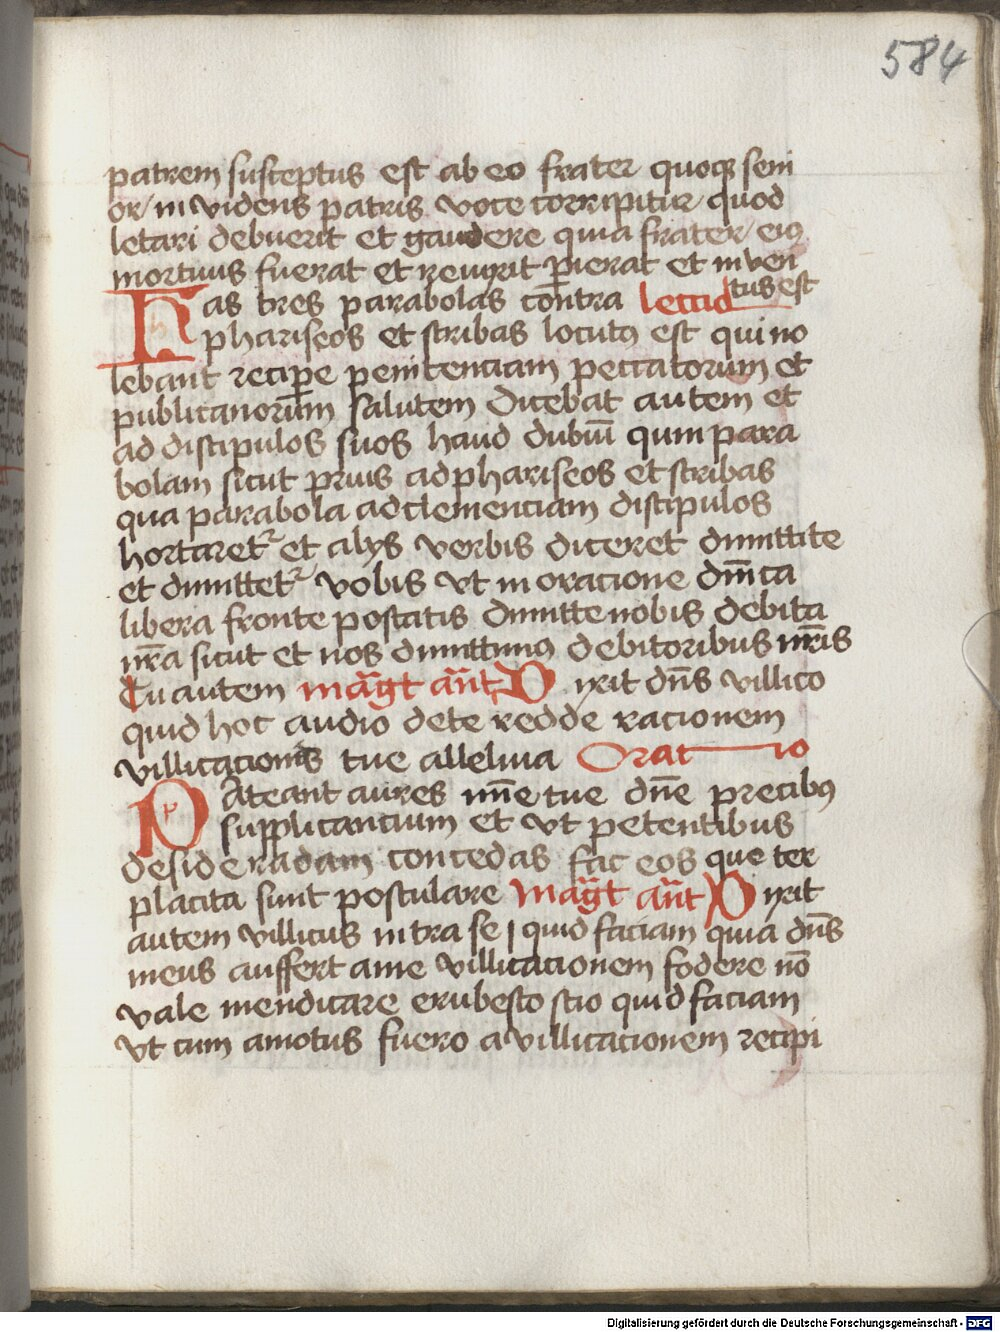 584
patrem susceptus est ab eo frater quoqꝫ seni
or / in videns patris voce corripitur quod
letari debuerit et gaudere quia frater / eiꝰ
mortuus fuerat et reuixit perierat et inuen
tus est
Has tres parabolas contra lectio
phariseos et scribas locutꝰ est qui no
lebant recipe penitenciam peccatorum et
publicanorum salutem dicebat autem et
ad discipulos suos haud dubiū qum para
bolam sicut prius ad phariseos et scribas
qua parabola ad clementiam discipulos
hortaretr et alijs verbis diceret dimittite
et dimittetr vobis vt in oracione dm̄ca
libera fronte poscatis dimitte nobis debita
nr̄a sicut et nos dimittimꝰ debitoribus nr̄is
Tu autem māgt an̄t Dixit dn̄s villico
quid hoc audio de te redde racionem
villicacionis tue alleluia Oratio
PAteant aures mīe tue dn̄e precibꝰ
supplicancium et vt petentibus
desideradam concedas fac eos que ter
placita sunt postulare māgt an̄t Dixit
autem villicus intra se quid faciam quia dn̄s
meus auffert a me villicacionem fodere nō
vale mendicare erubesco scio quid faciam
vt cum amotus fuero a villicacionem recipi
Digitalisierung gefördert durch die Deutsche Forschungsgemeinschaft - DFG